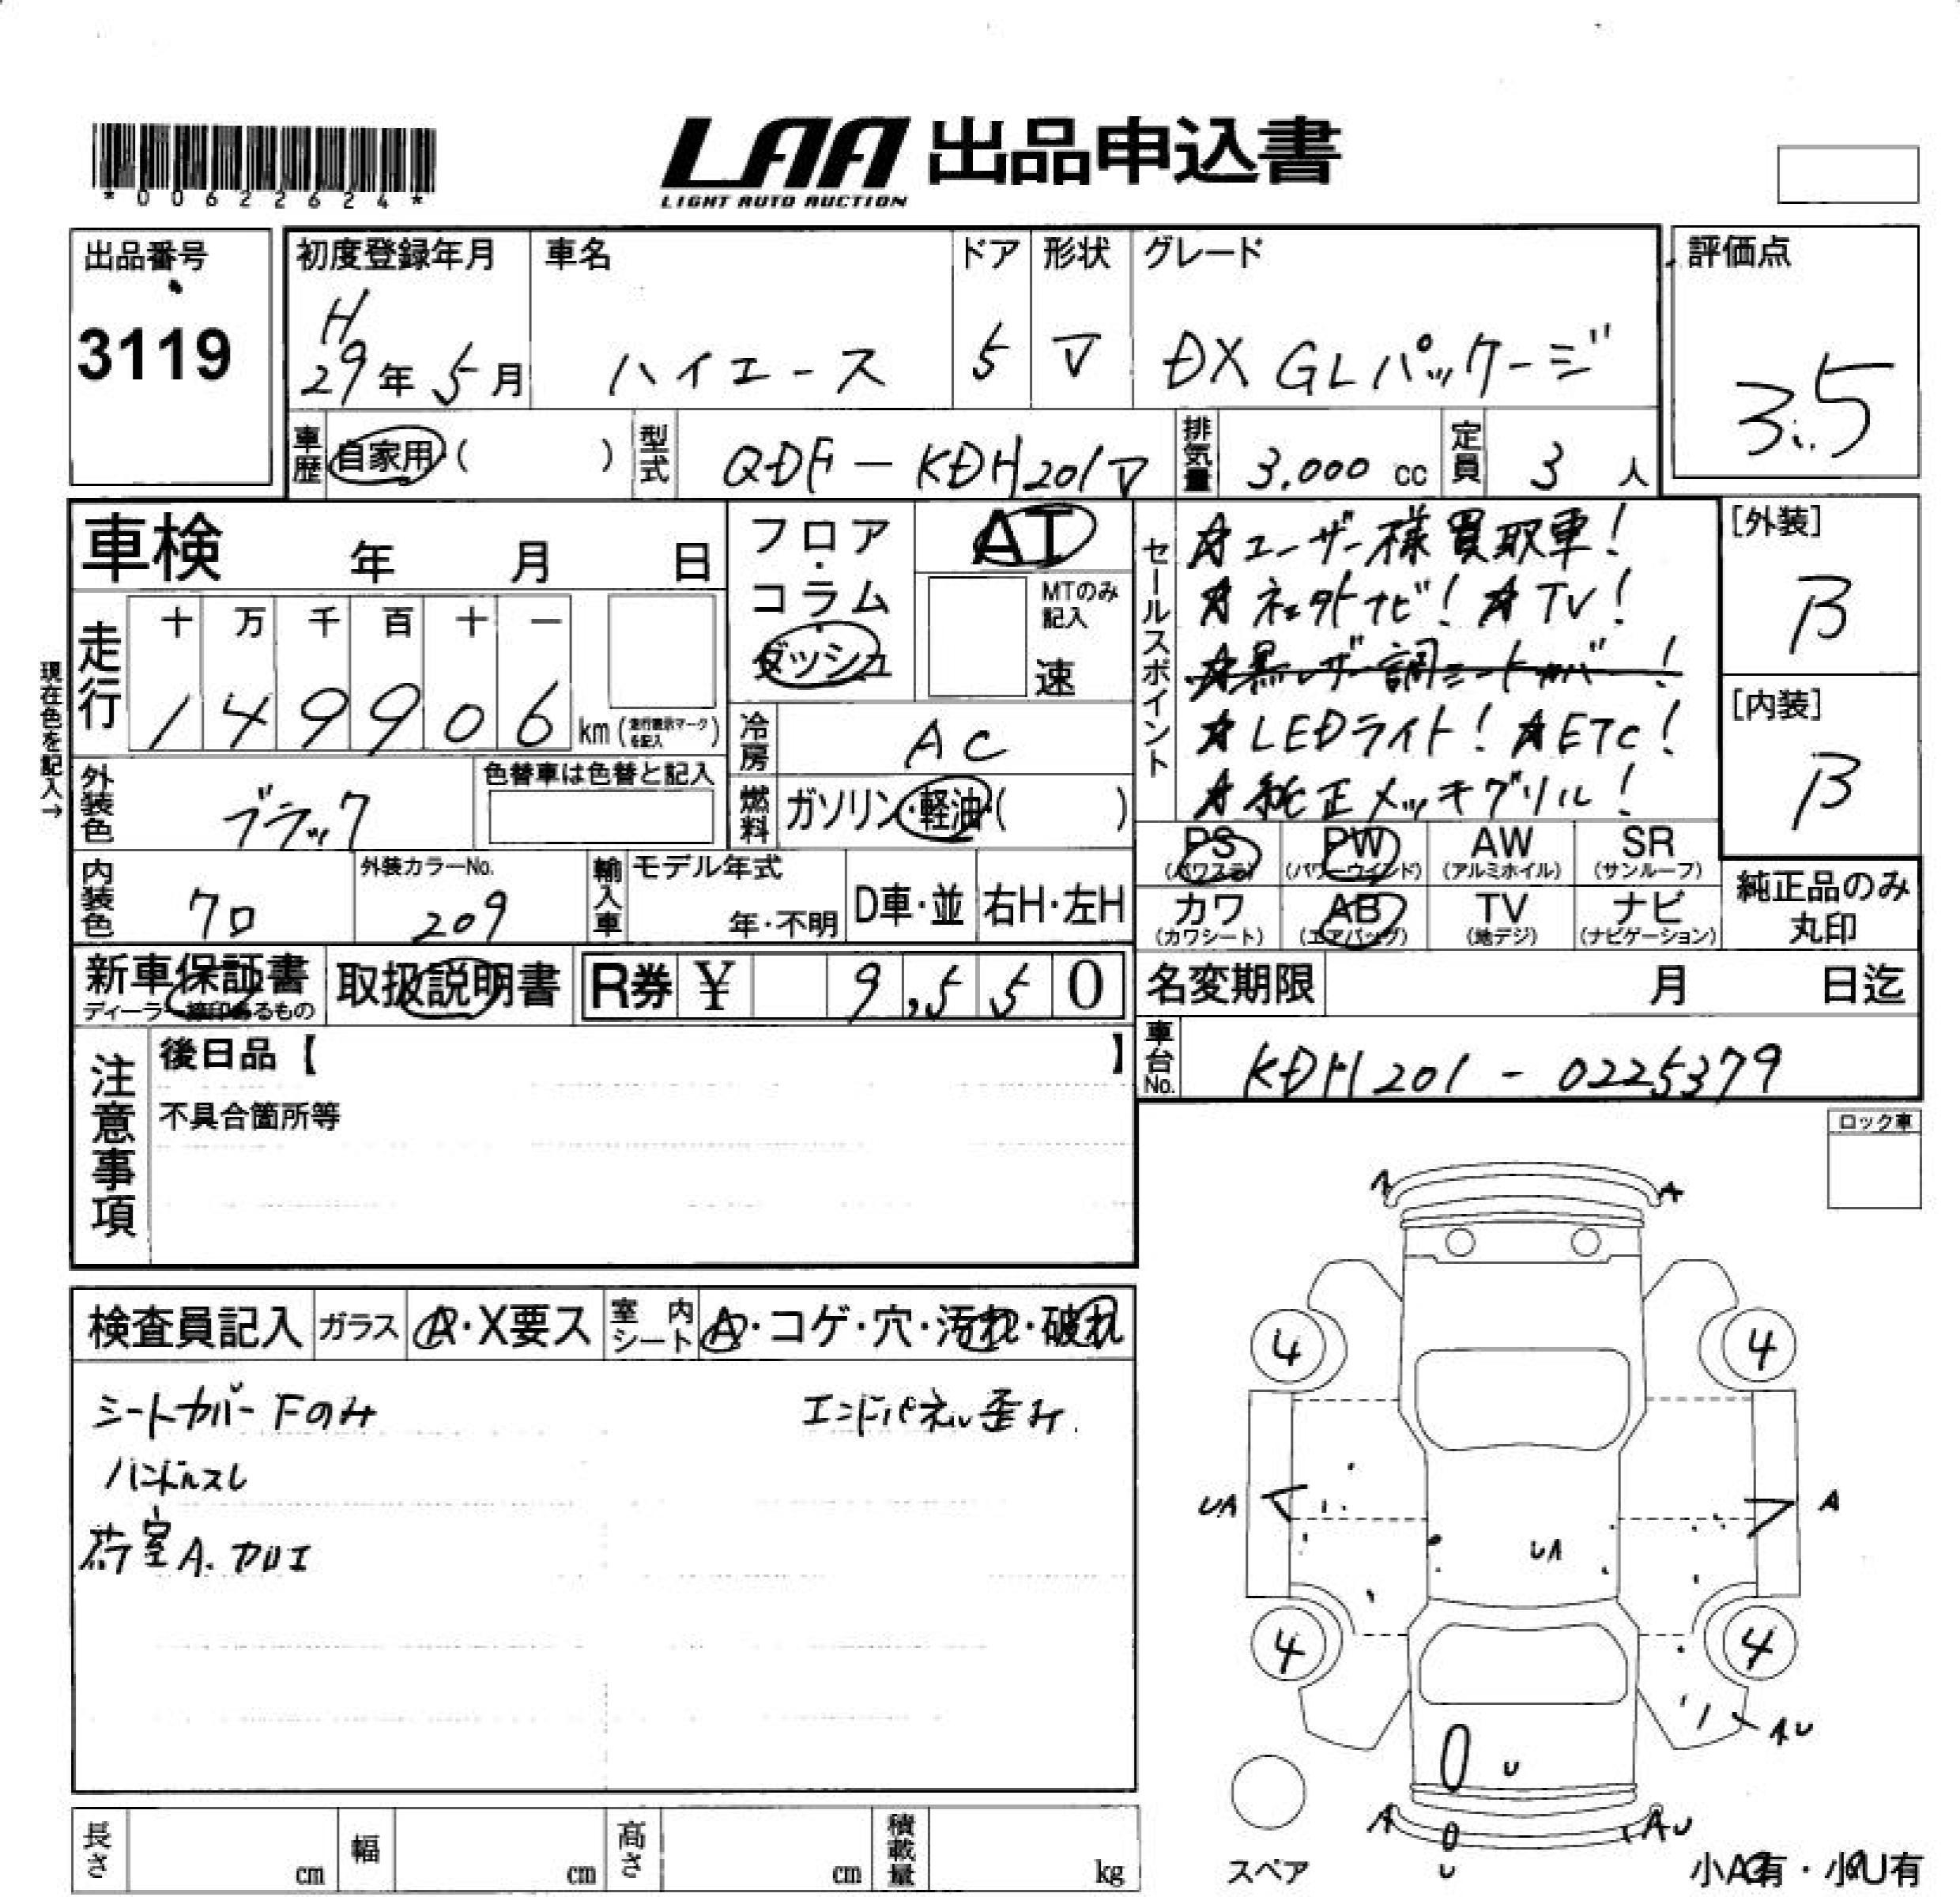 *00622624*
LAA 出品申込書
LIGHT AUTO AUCTION
出品番号
3119
初度登録年月
H
29年 5月
車名
ハイエース
ドア
5
形状
V
グレード
DX GLパッケージ
評価点
3.5
車歴 自家用 ( )
型式 QDF-KDH201V
排気量 3.000 cc
定員 3人
車検 年 月 日
フロア・コラム・ダッシュ
AT
MTのみ記入
速
走行
十 万 千 百 十 一
149906 km (走行表示マークを記入)
現在色を記入→
冷房 AC
燃料 ガソリン・軽油・( )
外装色 ブラック
色替車は色替と記入
内装色 クロ
外装カラーNo.
209
輸入車
モデル年式
年・不明
D車・並
右H・左H
セールスポイント
☆ユーザー様買取車!
☆社外ナビ!☆TV!
☆黒レザー調シートカバー!
☆LEDライト!☆ETC!
☆純正メッキグリル!
[外装]
B
[内装]
B
PS (パワステ)
PW (パワーウインド)
AW (アルミホイル)
SR (サンルーフ)
カワ (カワシート)
AB (エアバッグ)
TV (地デジ)
ナビ (ナビゲーション)
純正品のみ丸印
新車保証書
ディーラー捺印あるもの
取扱説明書
R券 ¥ 9,550
名変期限 月 日迄
車台No. KDH201-0225379
注意事項
後日品【 】
不具合箇所等
ロック車
検査員記入
ガラス A・X要ス
室内シート A・コゲ・穴・汚れ・破れ
シートカバー Fのみ
エンドパネル歪み.
ハンドルスレ
荷室A.カロエ
A
A
4
4
UA
A
UA
4
4
AU
U
A
AU
U
スペア
小A有・小U有
長さ cm
幅 cm
高さ cm
積載量 kg